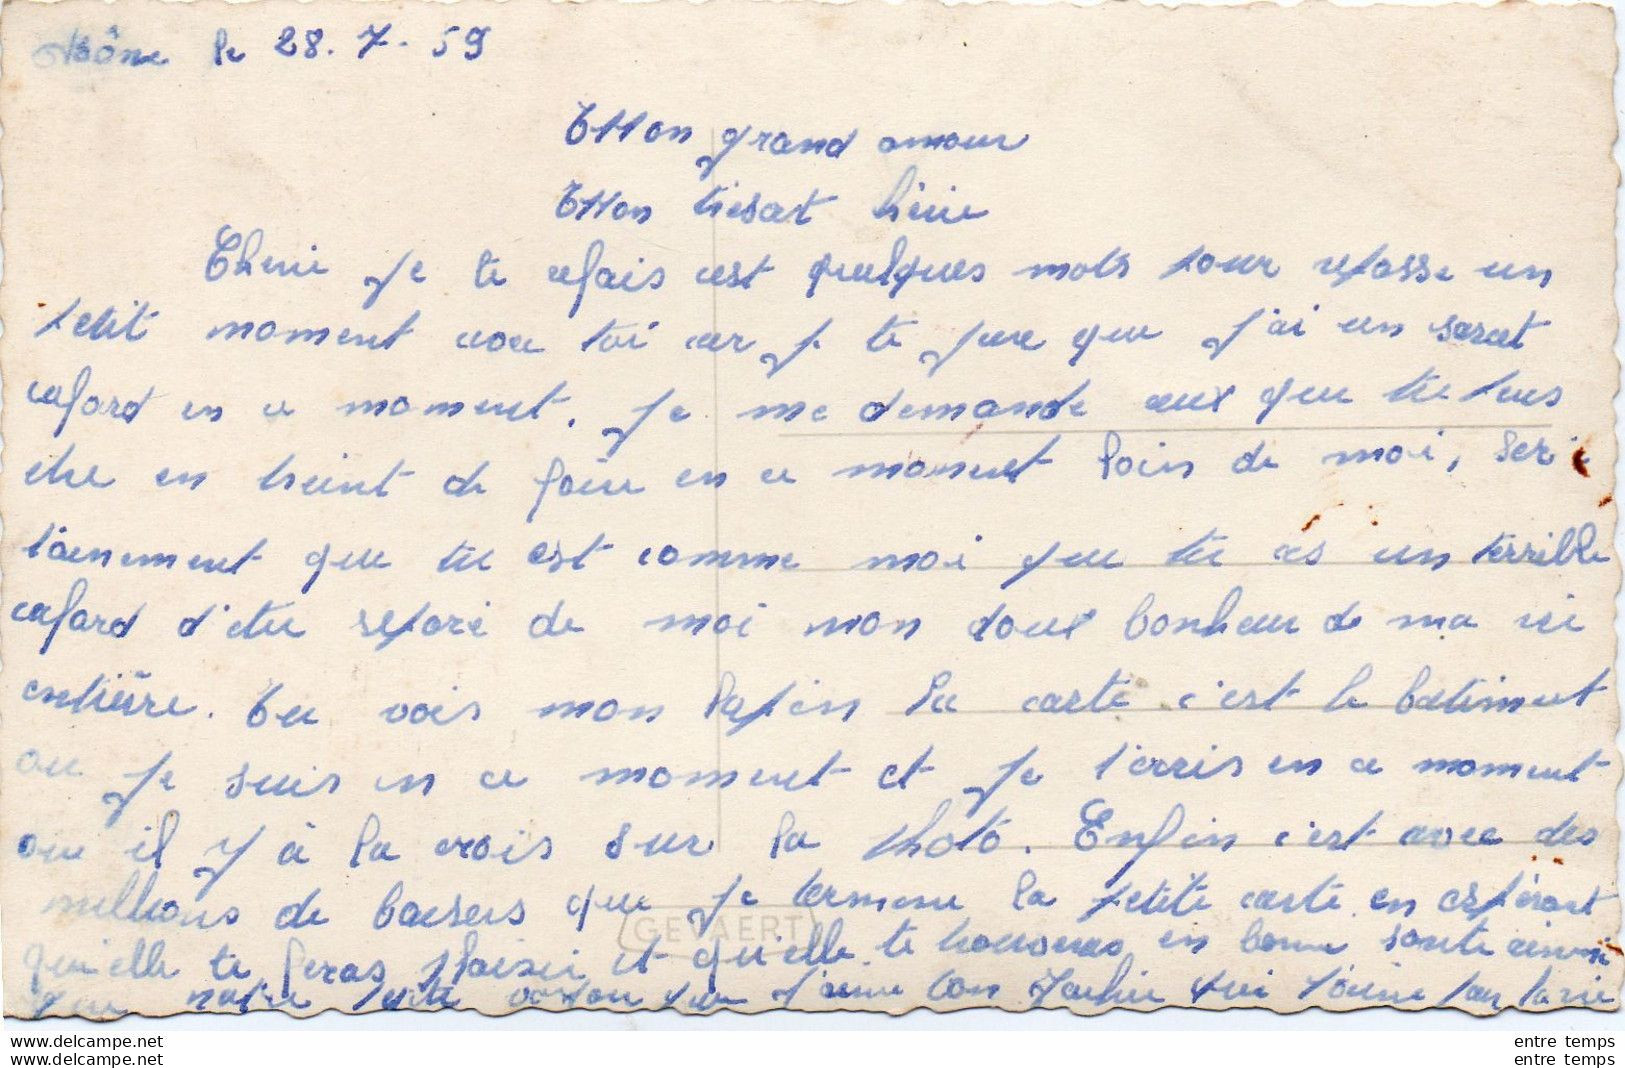 Bône le 28.7.59
Mon grand amour
Mon tresort chérie
Cherie je te refais cest quelques mots pour repasse un
petit moment avec toi car je te jure que j'ai un sacret
cafard en ce moment. Je me demande ceux que tu peus
etre en treint de faire en ce moment loin de moi, ser
tainement que tu est comme moi que tu as un terrible
cafard d'etre separé de moi mon doux bonheur de ma vie
entière. Tu vois mon lapin la carte c'est le batiment
ou je suis en ce moment et je t'ecris en ce moment
ou il y à la crois sur la photo. Enfin c'est avec des
millions de baisers que je termine la petite carte en espérant
qu'elle te feras plaisir et qu'elle te trouveras en bonne sante ainsi
que notre petite que j'aime ton qui t'aime pour la vie
GEVAERT
delcampe.net
delcampe.net
entre temps
entre temps